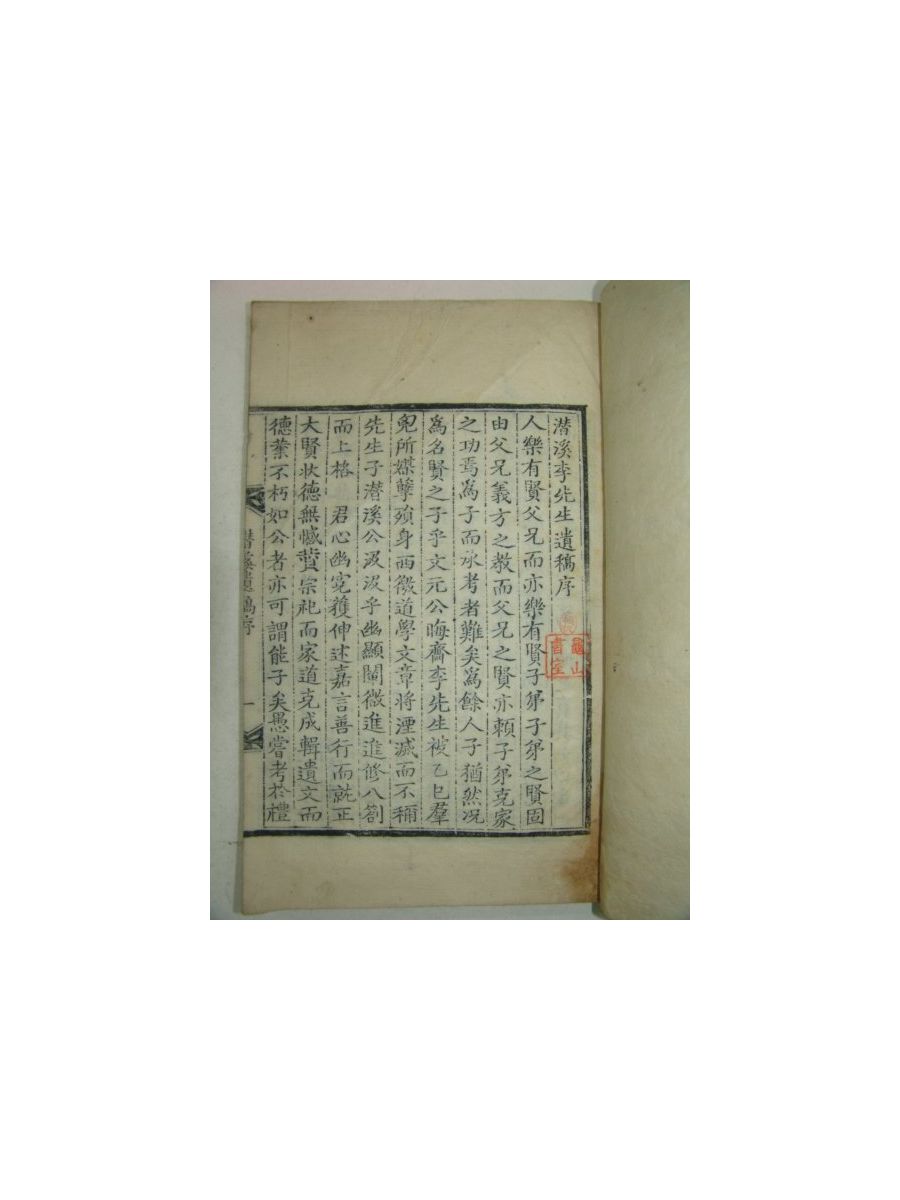 潜溪李先生遺稿序
人樂有賢父兄而亦樂有賢子弟子弟之賢固
由父兄義方之教而父兄之賢亦頼子弟克家
之功焉爲子而承考者難矣爲餘人子猶然况
爲名賢之子乎文元公晦齋李先生被乙巳羣
兇所媒孽殞身西徼道學文章将湮滅而不稱
先生子潜溪公汲汲乎幽顯闡微進進修八劄
而上格 君心幽寃獲伸述嘉言善行而就正
大賢狀德無憾 宗祀而家道克成輯遺文而
德業不朽如公者亦可謂能子矣愚嘗考於禮
龜山書室
潜溪遺稿序 一